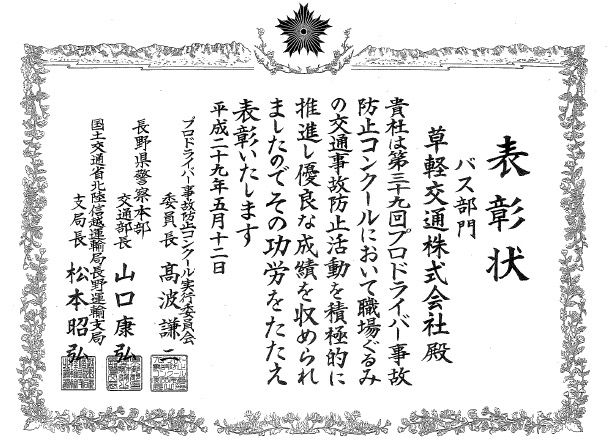 表彰状
バス部門
草軽交通株式会社殿
貴社は第三十九回プロドライバー事故
防止コンクールにおいて職場ぐるみ
の交通事故防止活動を積極的に
推進し優良な成績を収められ
ましたのでその功労をたたえ
表彰いたします
平成二十九年五月十二日
プロドライバー事故防止コンクール実行委員会
委員長 髙波謙二
長野県警察本部
交通部長 山口康弘
国土交通省北陸信越運輸局長野運輸支局
支局長 松本昭弘